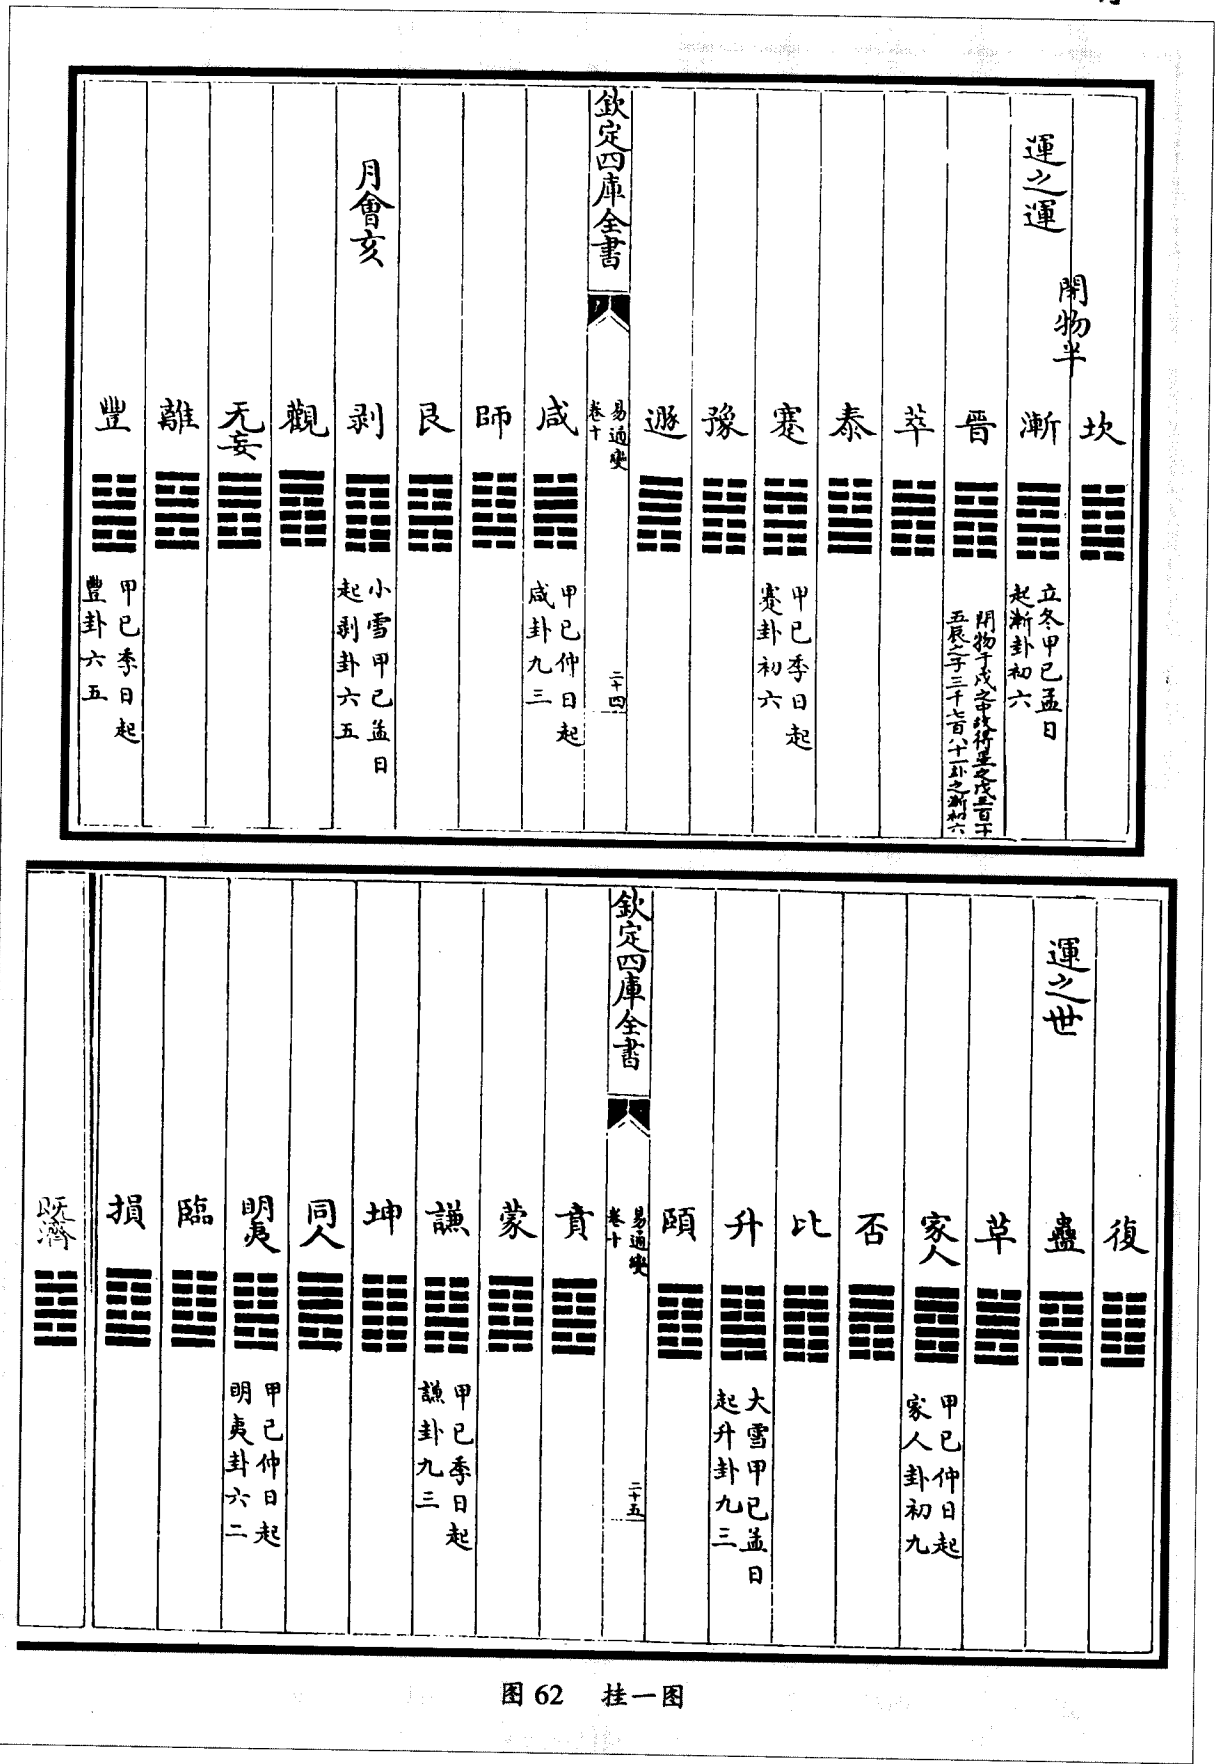 運之運
開物半
坎
漸
立冬甲己孟日
起漸卦初六
晉
閉物于戌之中故得星之戌三百十
五辰之子三千七百八十一卦之漸初六
萃
泰
蹇
甲己季日起
蹇卦初六
豫
遯
欽定四庫全書
易通變
卷十
二十四
咸
甲己仲日起
咸卦九三
師
艮
月會亥
剥
小雪甲己孟日
起剥卦六五
觀
无妄
離
豐
甲己季日起
豐卦六五
復
運之世
蠱
革
家人
甲己仲日起
家人卦初九
否
比
升
大雪甲己孟日
起升卦九三
頤
欽定四庫全書
易通變
卷十
二十五
賁
蒙
謙
甲己季日起
謙卦九三
坤
同人
明夷
甲己仲日起
明夷卦六二
臨
損
既濟
图62 挂一图